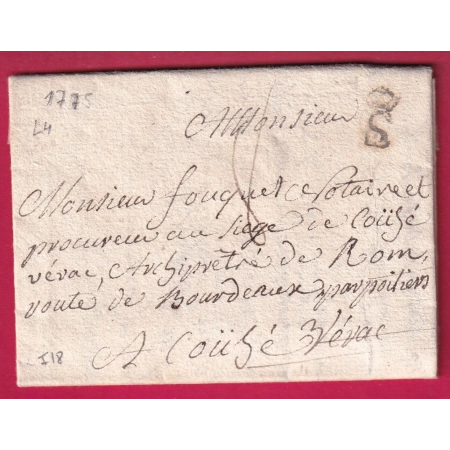 1775
L4
A Monsieur
S
Monsieur fouquet Notaire et
procureur au siege de Coühé
vérac, Archiprêtré de Rom,
route de Bourdeaux par poitiers
A Coühé Vérac
I18